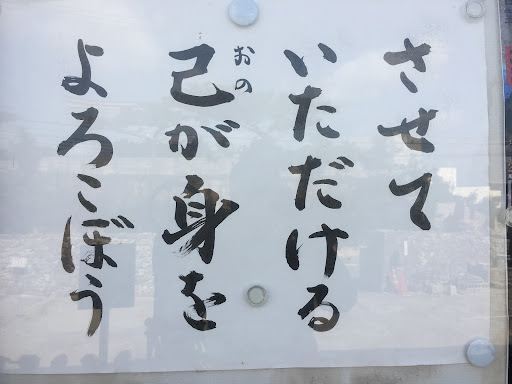 させて
いただける
己が身を
おの
よろこぼう